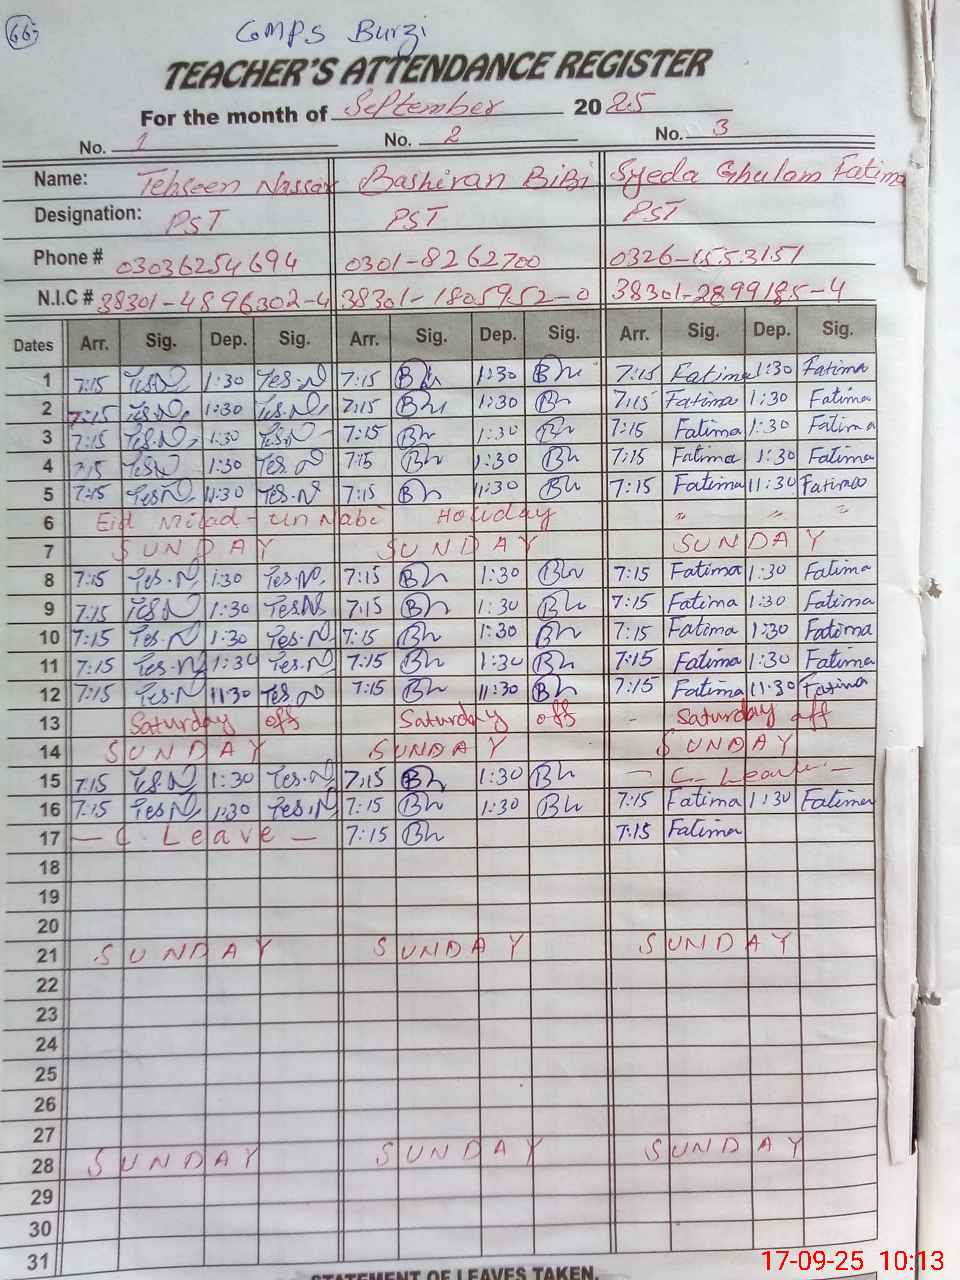 66
GMPS Burzi
TEACHER'S ATTENDANCE REGISTER
For the month of September 2025
No. 1 No. 2 No. 3
Name: Tehseen Nassar Bashiran BiBi Syeda Ghulam Fatima
Designation: PST PST PST
Phone # 03036254694 0301-8262700 0326-1553151
N.I.C # 38301-4896302-4 38301-1805952-0 38301-2899185-4
Dates Arr. Sig. Dep. Sig. Arr. Sig. Dep. Sig. Arr. Sig. Dep. Sig.
1 7:15 Tes.N 1:30 Tes.N 7:15 Bh 1:30 Bh 7:15 Fatima 1:30 Fatima
2 7:15 Tes.N 1:30 Tes.N 7:15 Bh 1:30 Bh 7:15 Fatima 1:30 Fatima
3 7:15 Tes.N 1:30 Tes.N 7:15 Bh 1:30 Bh 7:15 Fatima 1:30 Fatima
4 7:15 Tes.N 1:30 Tes.N 7:15 Bh 1:30 Bh 7:15 Fatima 1:30 Fatima
5 7:15 Tes.N 11:30 Tes.N 7:15 Bh 11:30 Bh 7:15 Fatima 11:30 Fatima
6 Eid Milad-un Nabi Holiday " " "
7 SUNDAY SUNDAY SUNDAY
8 7:15 Tes.N 1:30 Tes.N 7:15 Bh 1:30 Bh 7:15 Fatima 1:30 Fatima
9 7:15 Tes.N 1:30 Tes.N 7:15 Bh 1:30 Bh 7:15 Fatima 1:30 Fatima
10 7:15 Tes.N 1:30 Tes.N 7:15 Bh 1:30 Bh 7:15 Fatima 1:30 Fatima
11 7:15 Tes.N 1:30 Tes.N 7:15 Bh 1:30 Bh 7:15 Fatima 1:30 Fatima
12 7:15 Tes.N 11:30 Tes.N 7:15 Bh 11:30 Bh 7:15 Fatima 11:30 Fatima
13 Saturday off Saturday off - Saturday off
14 SUNDAY SUNDAY SUNDAY
15 7:15 Tes.N 1:30 Tes.N 7:15 Bh 1:30 Bh - C. Leave -
16 7:15 Tes.N 1:30 Tes.N 7:15 Bh 1:30 Bh 7:15 Fatima 1:30 Fatima
17 - C. Leave - 7:15 Bh 7:15 Fatima
18
19
20
21 SUNDAY SUNDAY SUNDAY
22
23
24
25
26
27
28 SUNDAY SUNDAY SUNDAY
29
30
31
STATEMENT OF LEAVES TAKEN.
17-09-25 10:13